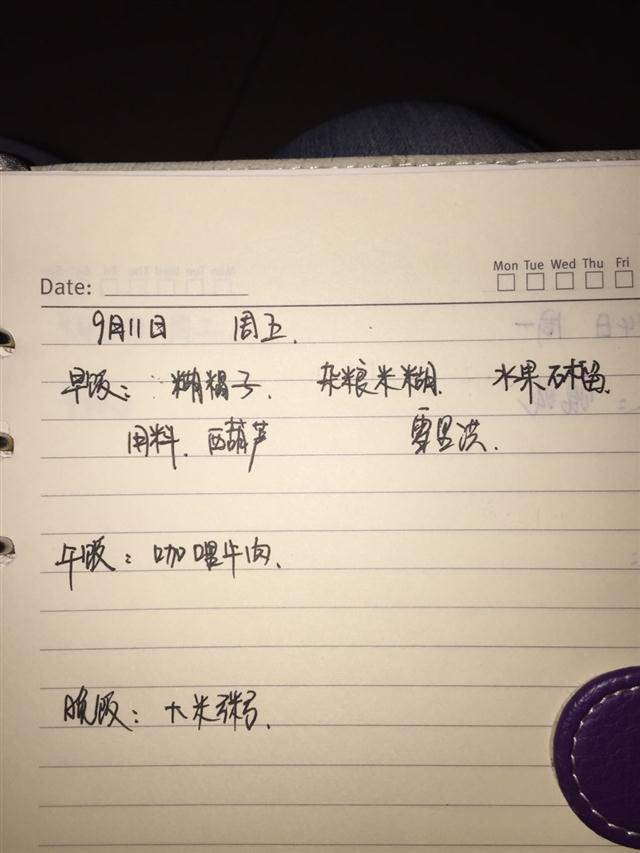 Mon Tue Wed Thu Fri
Date:
9月11日 周五.
早饭: 糊塌子. 杂粮米糊. 水果石榴.
用料. 西葫芦 雪里洪.
午饭: 咖喱牛肉.
晚饭: 大米粥.